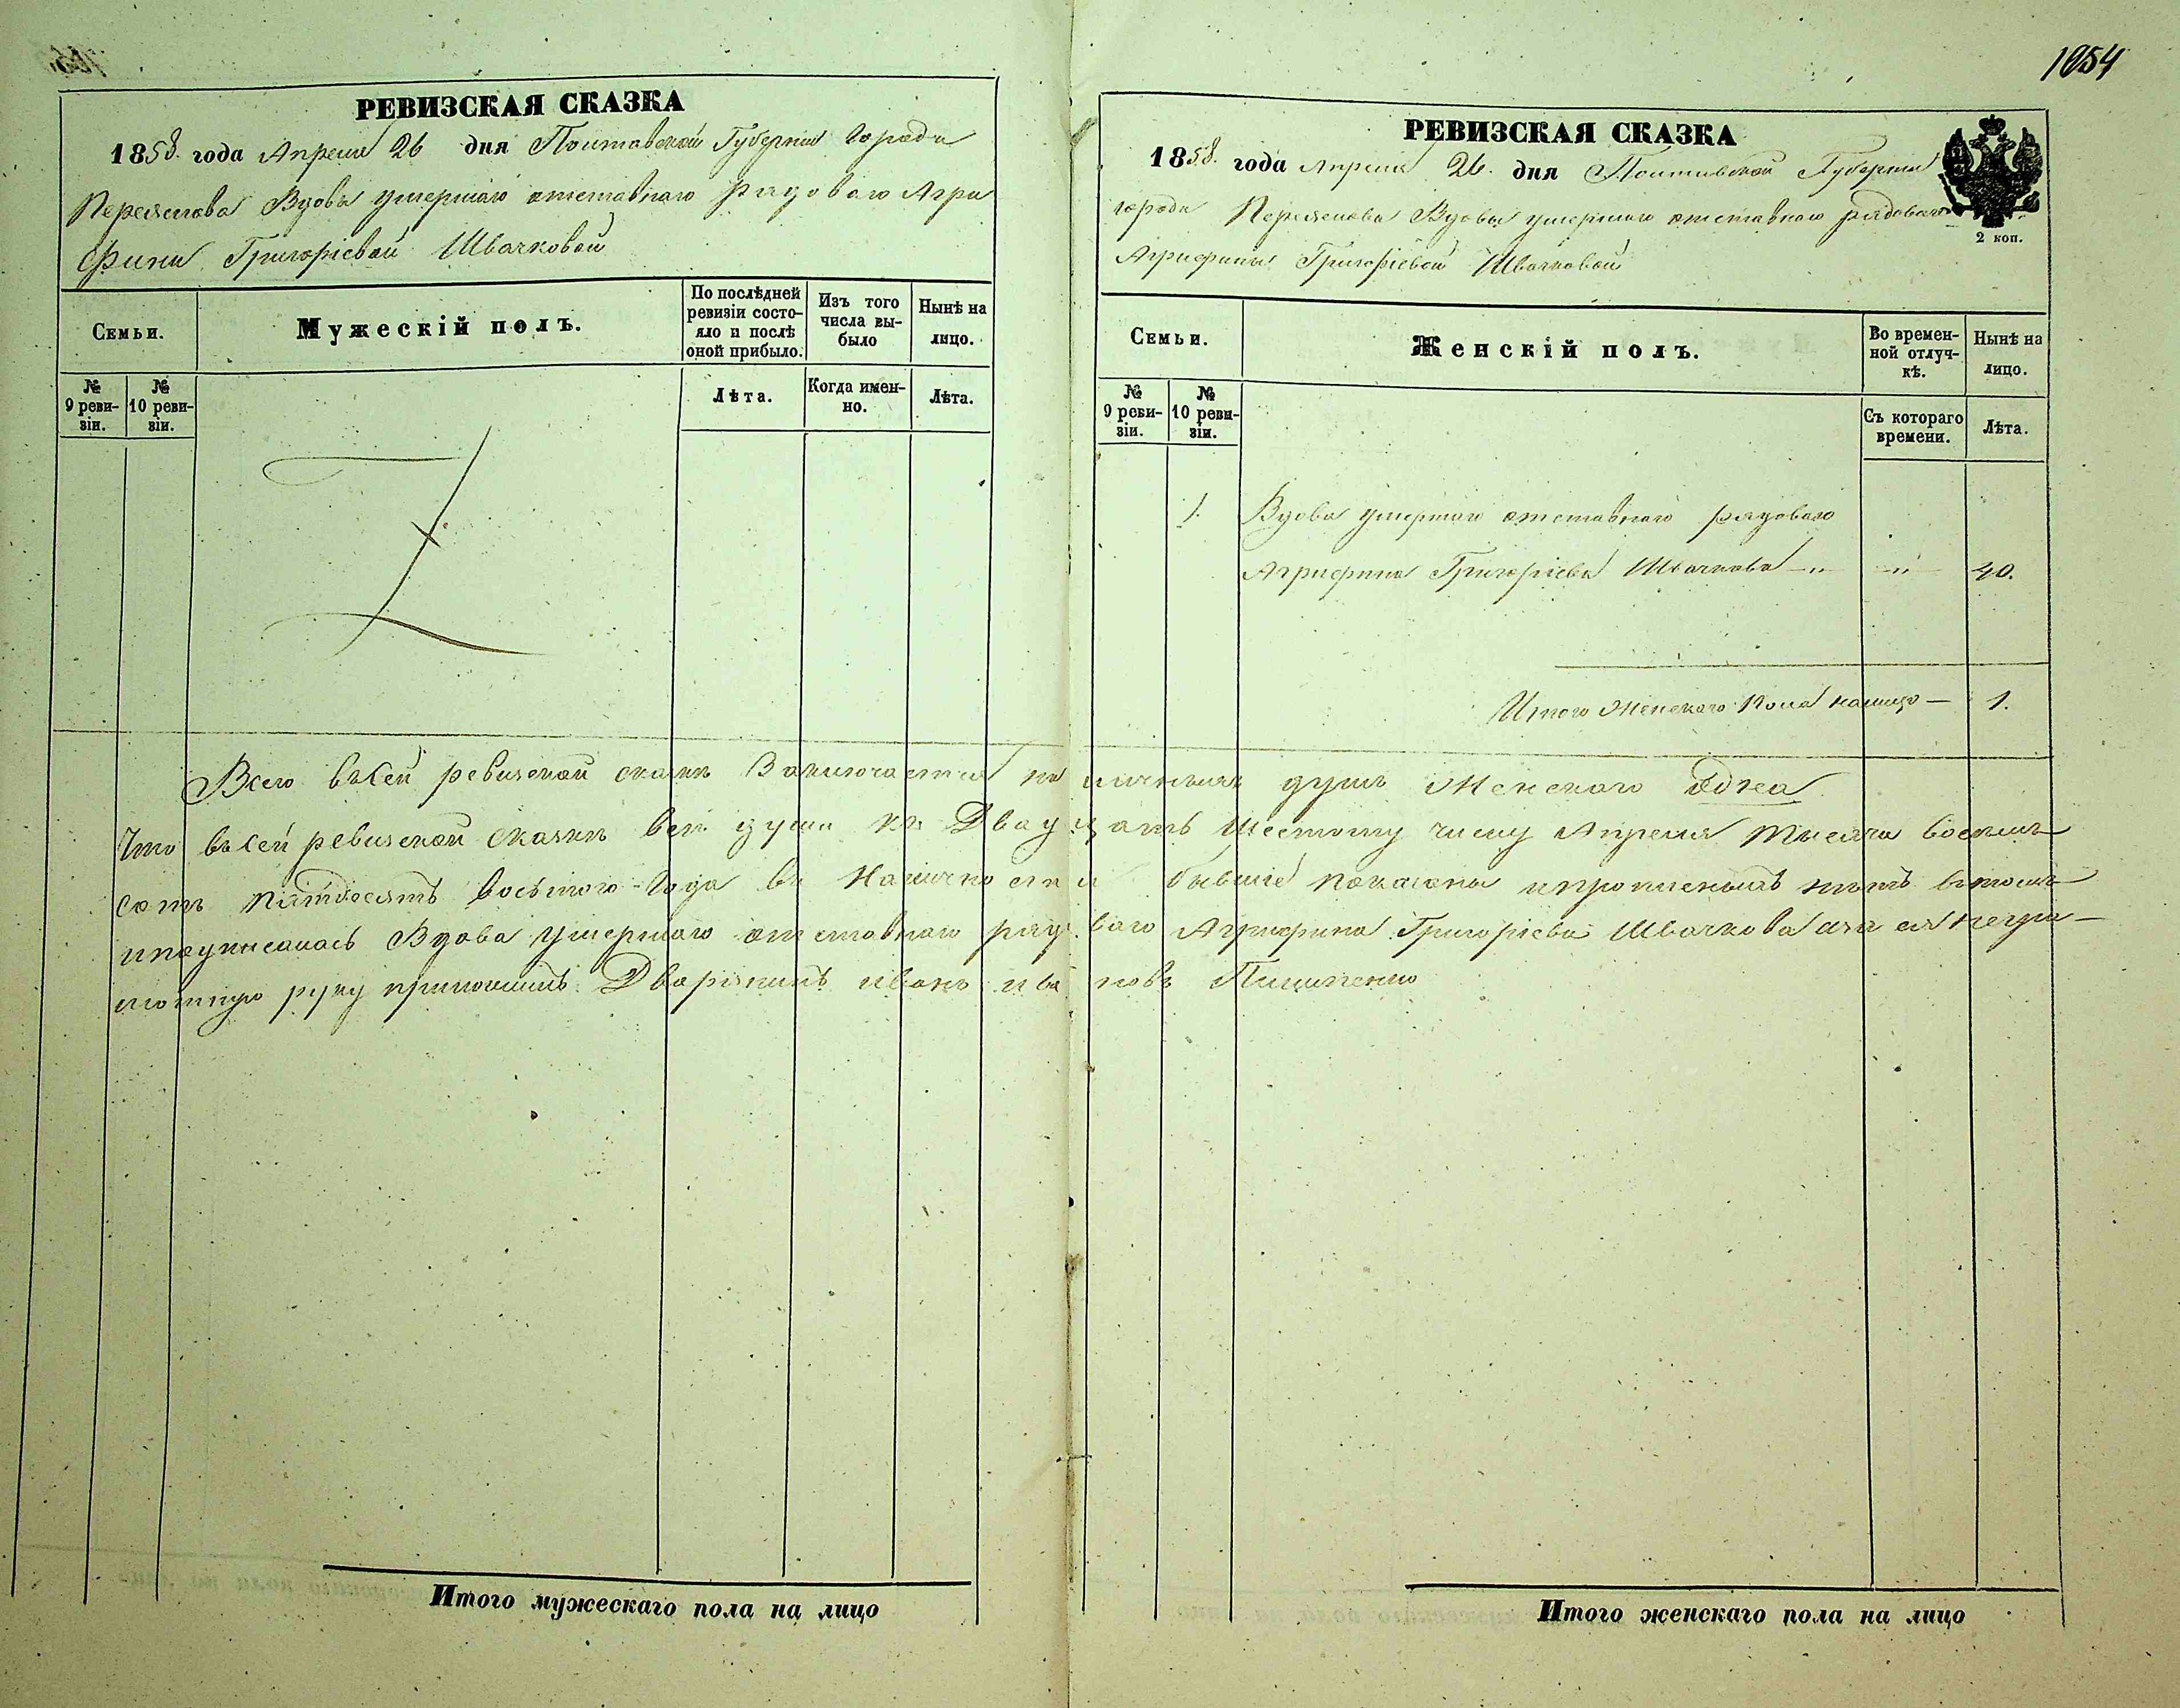 1054
РЕВИЗСКАЯ СКАЗКА
1858. года Апреля 26 дня Полтавской Губернии Города
Переяслова Вдовы умершаго отставнаго рядоваго Агри
фины Григорiевой Швачковой
Семьи.
Мужескiй полъ.
По послѣдней ревизiи состояло и послѣ оной прибыло.
Изъ того числа выбыло
Нынѣ на лицо.
№ 9 ревизiи.
№ 10 ревизiи.
Лѣта.
Когда именно.
Лѣта.
РЕВИЗСКАЯ СКАЗКА
1858. года Апреля 26. дня Полтавской Губернiи
города Переяслова Вдовы умершаго отставнаго рядоваго
Агрифины Григорiевой Швачковой
2 коп.
Семьи.
Женскiй полъ.
Во временной отлучкѣ.
Нынѣ на лицо.
№ 9 ревизiи.
№ 10 ревизiи.
Съ котораго времени.
Лѣта.
1. Вдова умершаго отставнаго рядоваго
Агрифина Григорiева Швачкова — „ — „ — 40.
Итого Женскаго Пола налицо — 1.
Всего въ сей ревизской сказкѣ Заключается наличныхъ душъ Женскаго Одна
Что въ сей ревизской сказкѣ всѣ души къ Двадцать Шестому числу Апреля Тысяча восемь
сотъ пятдесятъ восьмого Года въ Наличности бывшiе показаны и прописныхъ нѣтъ въ томъ
и подписалась Вдова Умершаго отставнаго рядоваго Агрифина Григорiева Швачкова а за ея негра
мотную руку приложилъ Дворянинъ Иванъ Ивановъ
Итого мужескаго пола на лицо
Итого женскаго пола на лицо